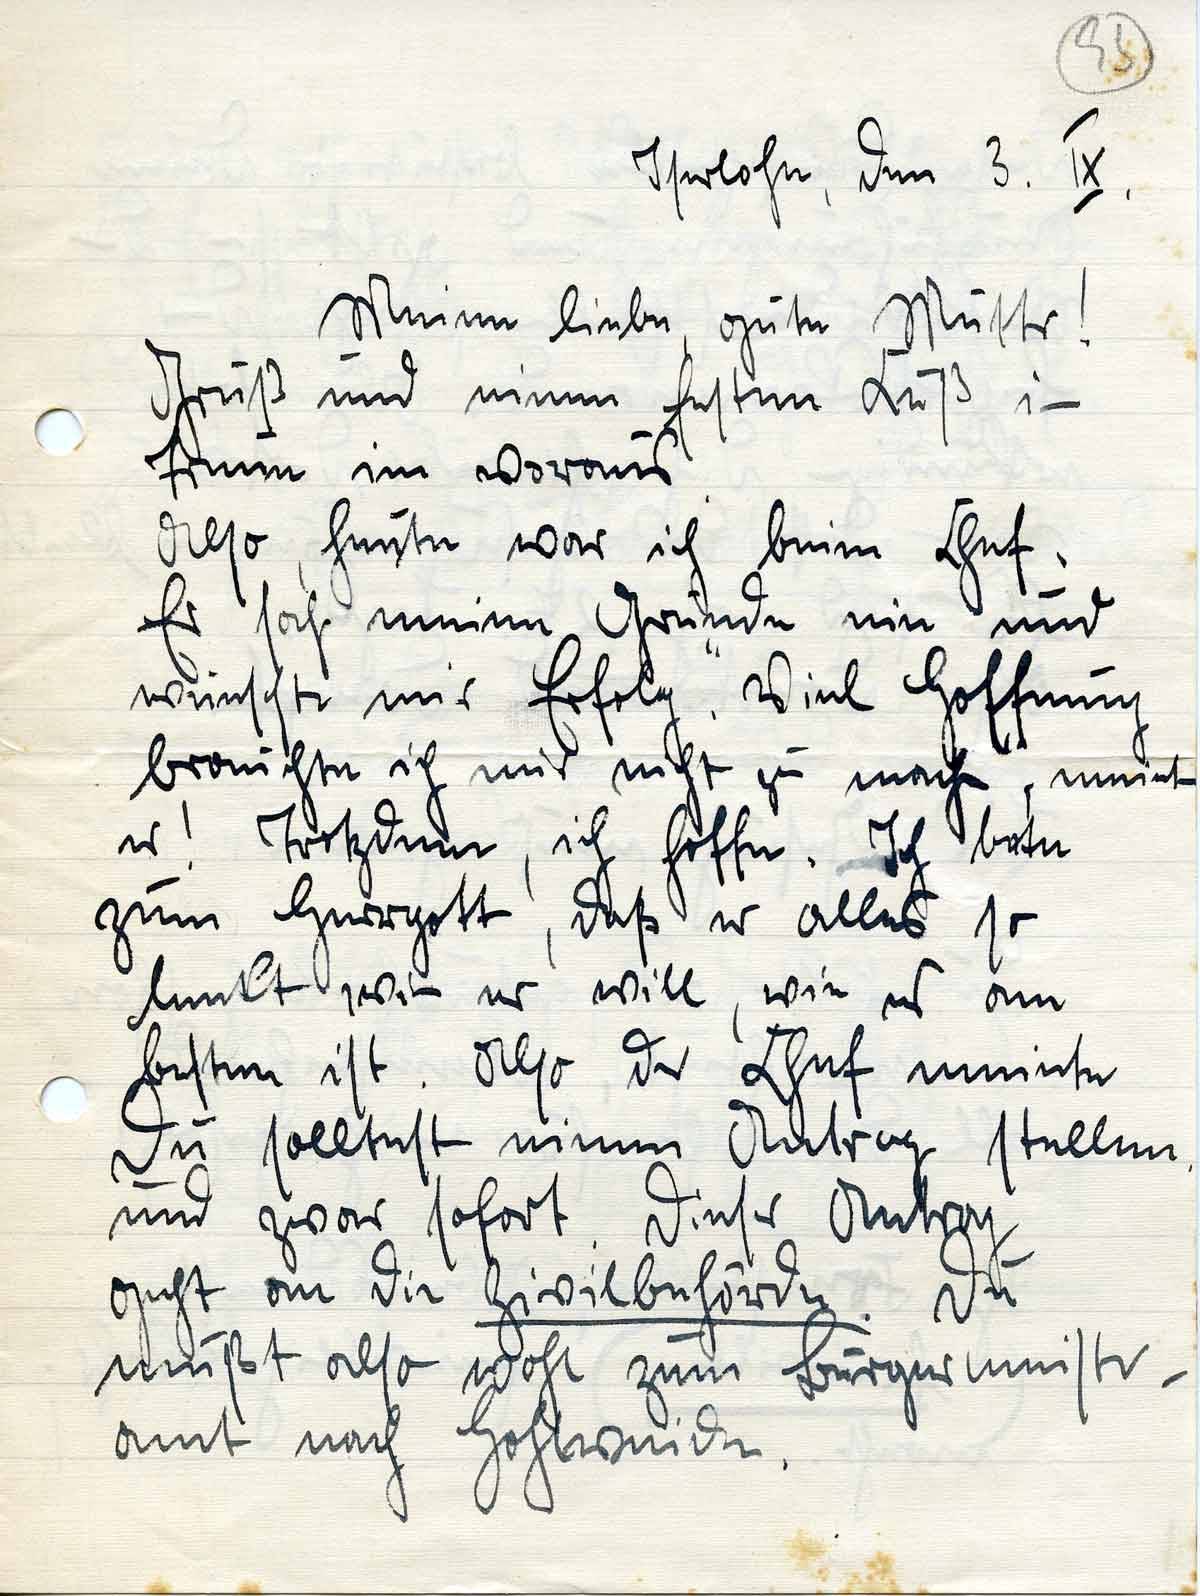 95
Iserlohn, den 3. IX.
Meine liebe, gute Mutter!
Gruß und einen festen Kuß i-
hnen im voraus
Also, heute war ich beim Chef.
Er sah meine Gründe ein und
wünschte mir Erfolg. "Viel Hoffnung
brauchte ich mir nicht zu mach", meint
er! Trotzdem, ich hoffe. Ich bete
zum Herrgott, daß er alles so
lenkt wie er will, wie es am
besten ist. Also der Chef meinte
Du solltest einen Antrag stellen.
und zwar sofort. Dieser Antrag
geht an die Zivilbehörde. Du
mußt also wohl zum Bürgermeister-
amt nach